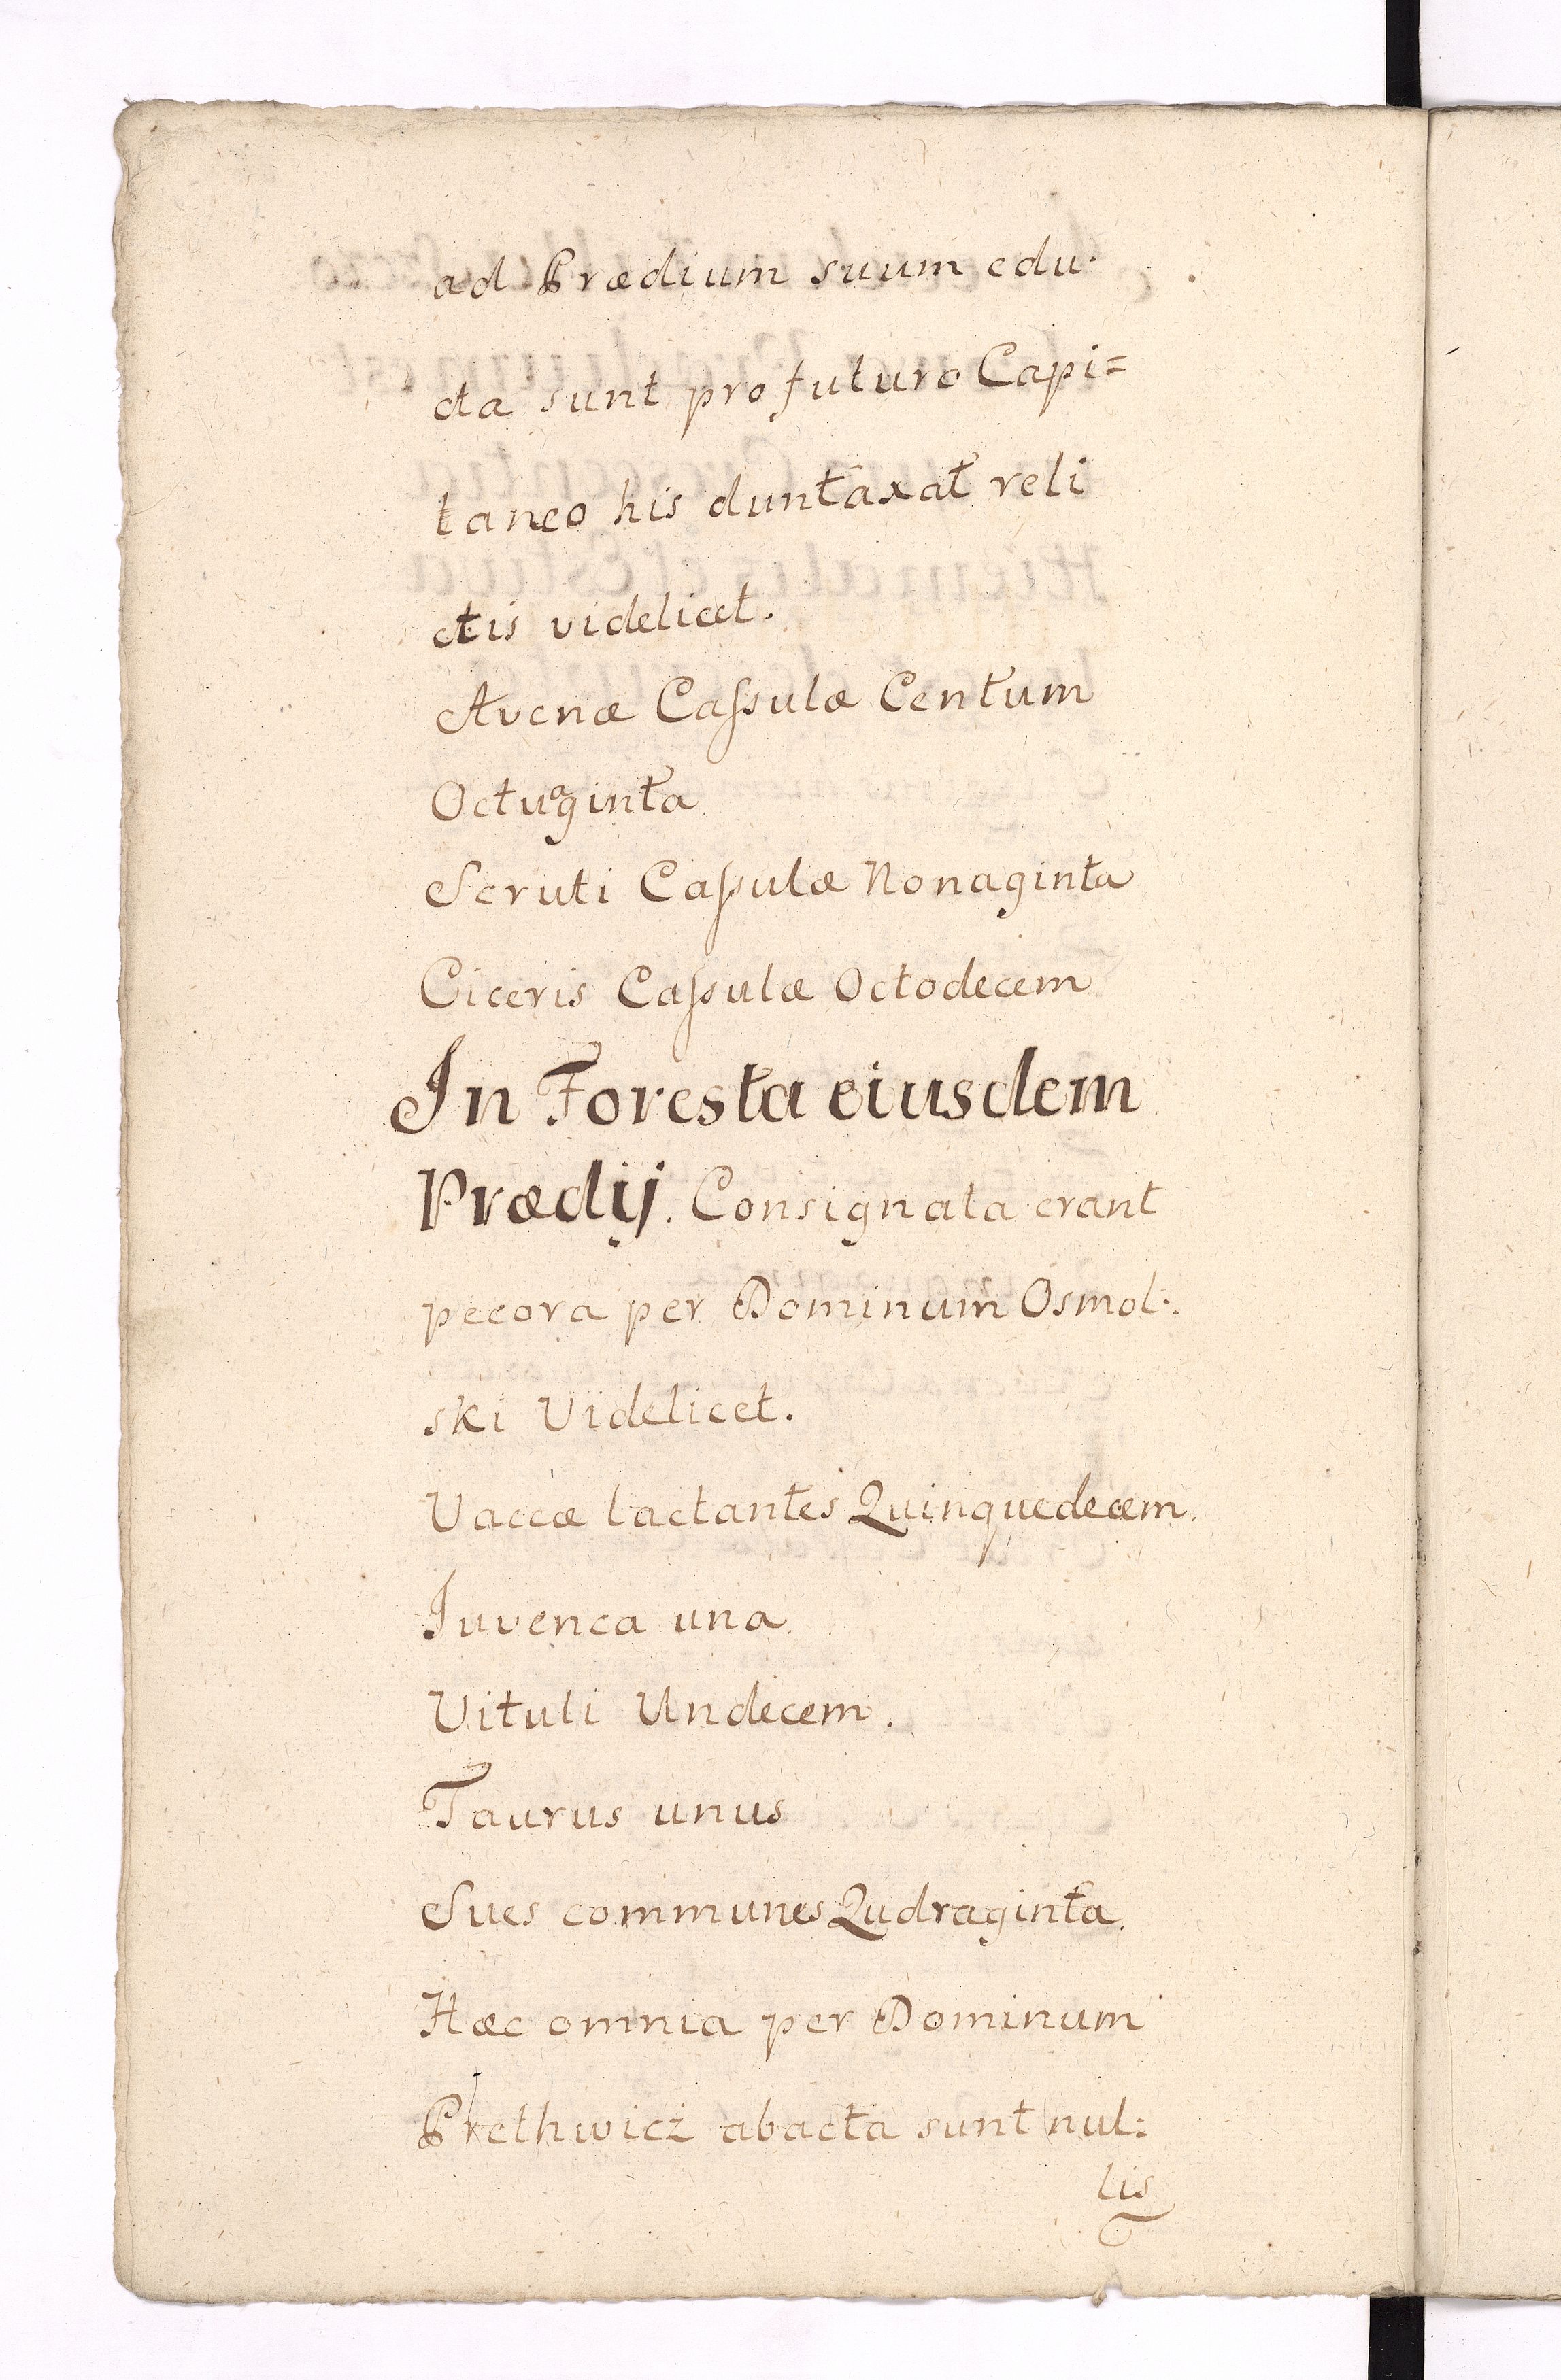 ad Prædium suum edu-
cta sunt pro futuro Capi=
taneo his duntaxat reli
ctis videlicet.
Avenæ Caſsulæ Centum
Octuaginta
Scruti Caſsulæ Nonaginta
Ciceris Caſsulæ Octodecem
In Foresta eiusdem
Prædij. Consignata erant
pecora per Dominum Osmol:
ski Videlicet.
Vaccæ lactantes Quinquedecem.
Iuvenca una.
Vituli Undecem.
Taurus unus
Sues communes Qudraginta.
Hæc omnia per Dominum
Prethwicz abacta sunt nul:
lis